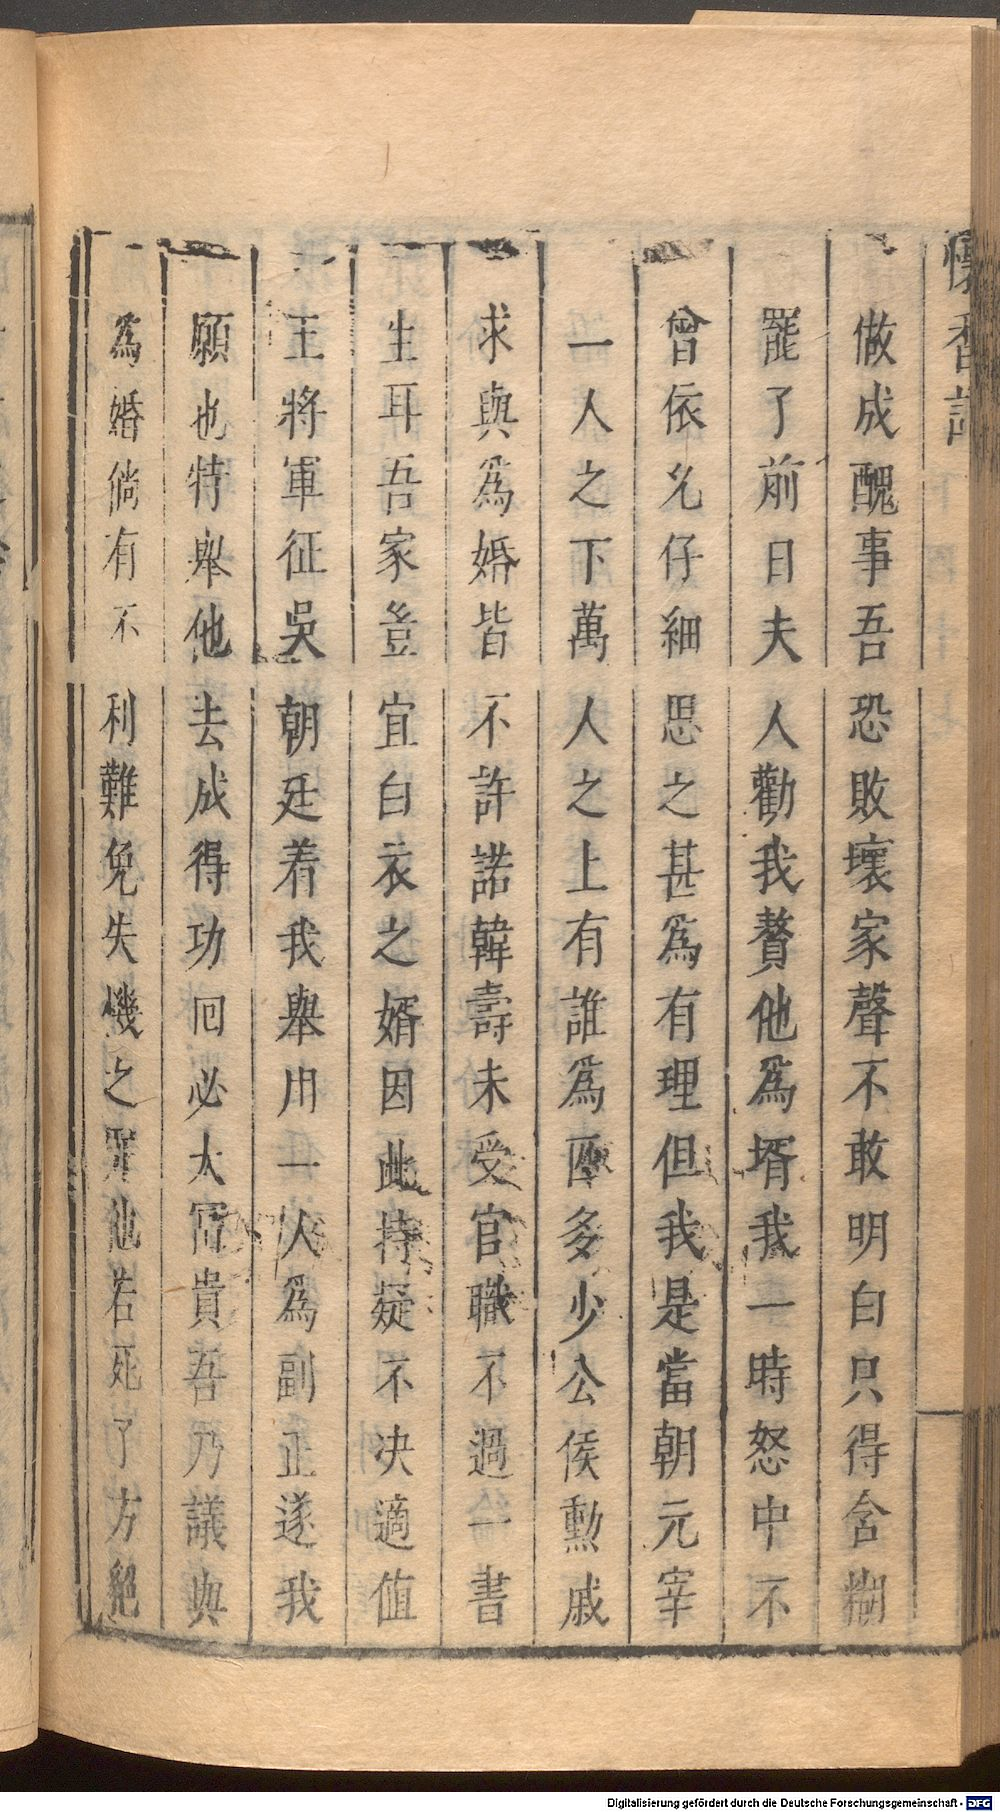 懷香記
做成醜事吾恐敗壞家聲不敢明白只得含糊
罷了前日夫人勸我贅他為壻我一時怒中不
曾依允仔細思之甚為有理但我是當朝元宰
一人之下萬人之上有誰為匹多少公侯勳戚
求與為婚皆不許諾韓壽未受官職不過一書
生耳吾家豈宜白衣之婿因此持疑不决適值
王將軍征吳朝廷着我舉用一人為副正遂我
願也特舉他去成得功回必大富貴吾乃議與
為婚倘有不利難免失機之罪他若死了方絕
Digitalisierung gefördert durch die Deutsche Forschungsgemeinschaft - DFG